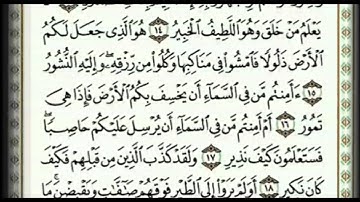 يَعْلَمُ مَنْ خَلَقَ وَهُوَ اللَّطِيفُ الْخَبِيرُ ١٤ هُوَ الَّذِي جَعَلَ لَكُمُ
الْأَرْضَ ذَلُولًا فَامْشُوا فِي مَنَاكِبِهَا وَكُلُوا مِن رِّزْقِهِ وَإِلَيْهِ النُّشُورُ
١٥ ءَأَمِنتُم مَّن فِي السَّمَاءِ أَن يَخْسِفَ بِكُمُ الْأَرْضَ فَإِذَا هِيَ
تَمُورُ ١٦ أَمْ أَمِنتُم مَّن فِي السَّمَاءِ أَن يُرْسِلَ عَلَيْكُمْ حَاصِبًا
فَسَتَعْلَمُونَ كَيْفَ نَذِيرِ ١٧ وَلَقَدْ كَذَّبَ الَّذِينَ مِن قَبْلِهِمْ فَكَيْفَ
كَانَ نَكِيرِ ١٨ أَوَلَمْ يَرَوْا إِلَى الطَّيْرِ فَوْقَهُمْ صَافَّاتٍ وَيَقْبِضْنَ مَا